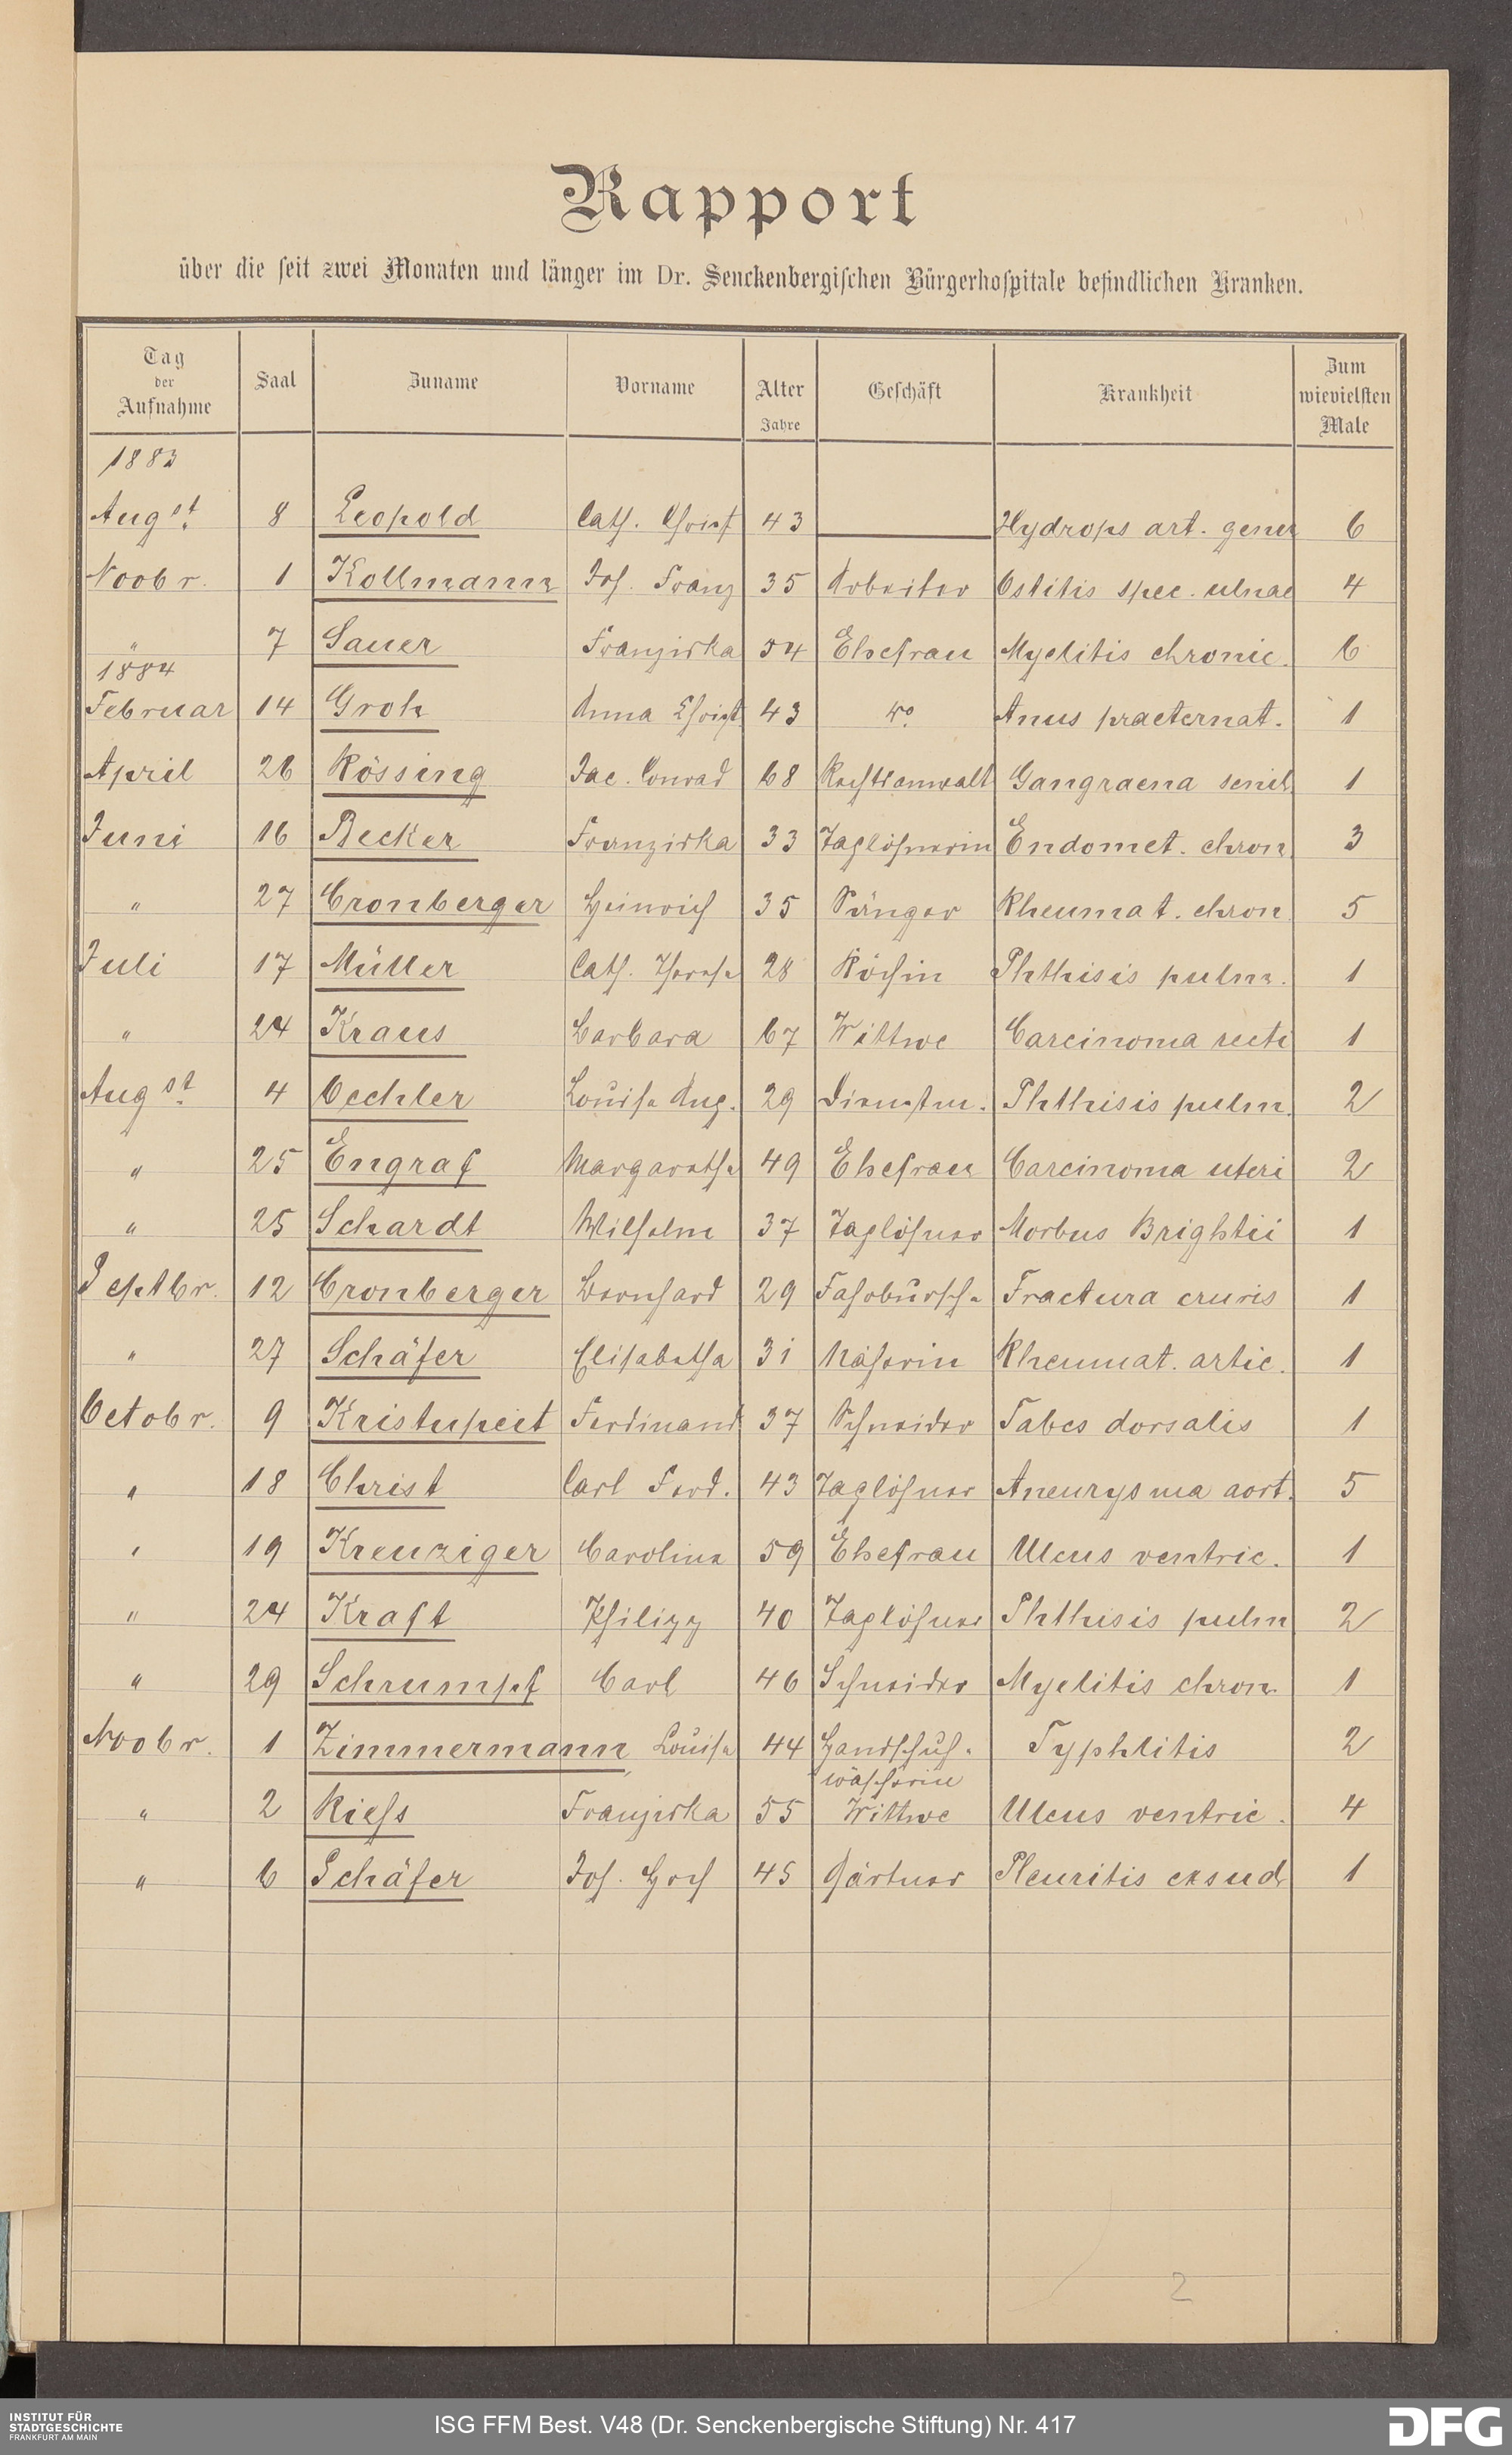 Rapport
über die seit zwei Monaten und länger im Dr. Senckenbergischen Bürgerhospitale befindlichen Kranken.
Tag der Aufnahme Saal Zuname Vorname Alter Jahre Geschäft Krankheit Zum wievielsten Male
1883
Augst. 8 Leopold Cath. Christ 43 Hydrops art. gener 6
Novbr. 1 Kollmann Joh. Franz 35 Arbeiter Ostitis spec. ulnae 4
" 7 Sauer Franziska 54 Ehefrau Myelitis chronic. 6
1884
Februar 14 Groh Anna Christ. 43 do. Anus praeternat. 1
April 26 Rössing Jac. Conrad 68 Rechtsanwalt Gangraena senil. 1
Juni 16 Becker Franziska 33 Taglöhnerin Endomet. chron. 3
" 27 Cronberger Heinrich 35 Sänger Rheumat. chron 5
Juli 17 Müller Cath. Therese 28 Köchin Phthisis pulm. 1
" 24 Kraus Barbara 67 Wittwe Carcinoma recti 1
Augst. 4 Oechler Louise Aug. 29 Dienstm. Phthisis pulm. 2
" 25 Engraf Margarethe 49 Ehefrau Carcinoma uteri 2
" 25 Schardt Wilhelm 37 Taglöhner Morbus Brightii 1
Septbr. 12 Cronberger Bernhard 29 Fahrbursche Fractura cruris 1
" 27 Schäfer Elisabetha 31 Näherin Rheumat. artic. 1
Octobr. 9 Kristupeit Ferdinand 37 Schneider Tabes dorsalis 1
" 18 Christ Carl Ferd. 43 Taglöhner Aneurysma aort. 5
" 19 Kreuziger Caroline 59 Ehefrau Ulcus ventric. 1
" 24 Kraft Philipp 40 Taglöhner Phthisis pulm 2
" 29 Schrumpf Carl 46 Schneider Myelitis chron. 1
Novbr. 1 Zimmermann, Louise 44 Handschuh- Typhlitis 2
wäscherin
" 2 Riess Franziska 55 Wittwe Ulcus ventric. 4
" 6 Schäfer Joh. 45 Gärtner Pleuritis exsud 1
2
INSTITUT FÜR
STADTGESCHICHTE
FRANKFURT AM MAIN
ISG FFM Best. V48 (Dr. Senckenbergische Stiftung) Nr. 417
DFG